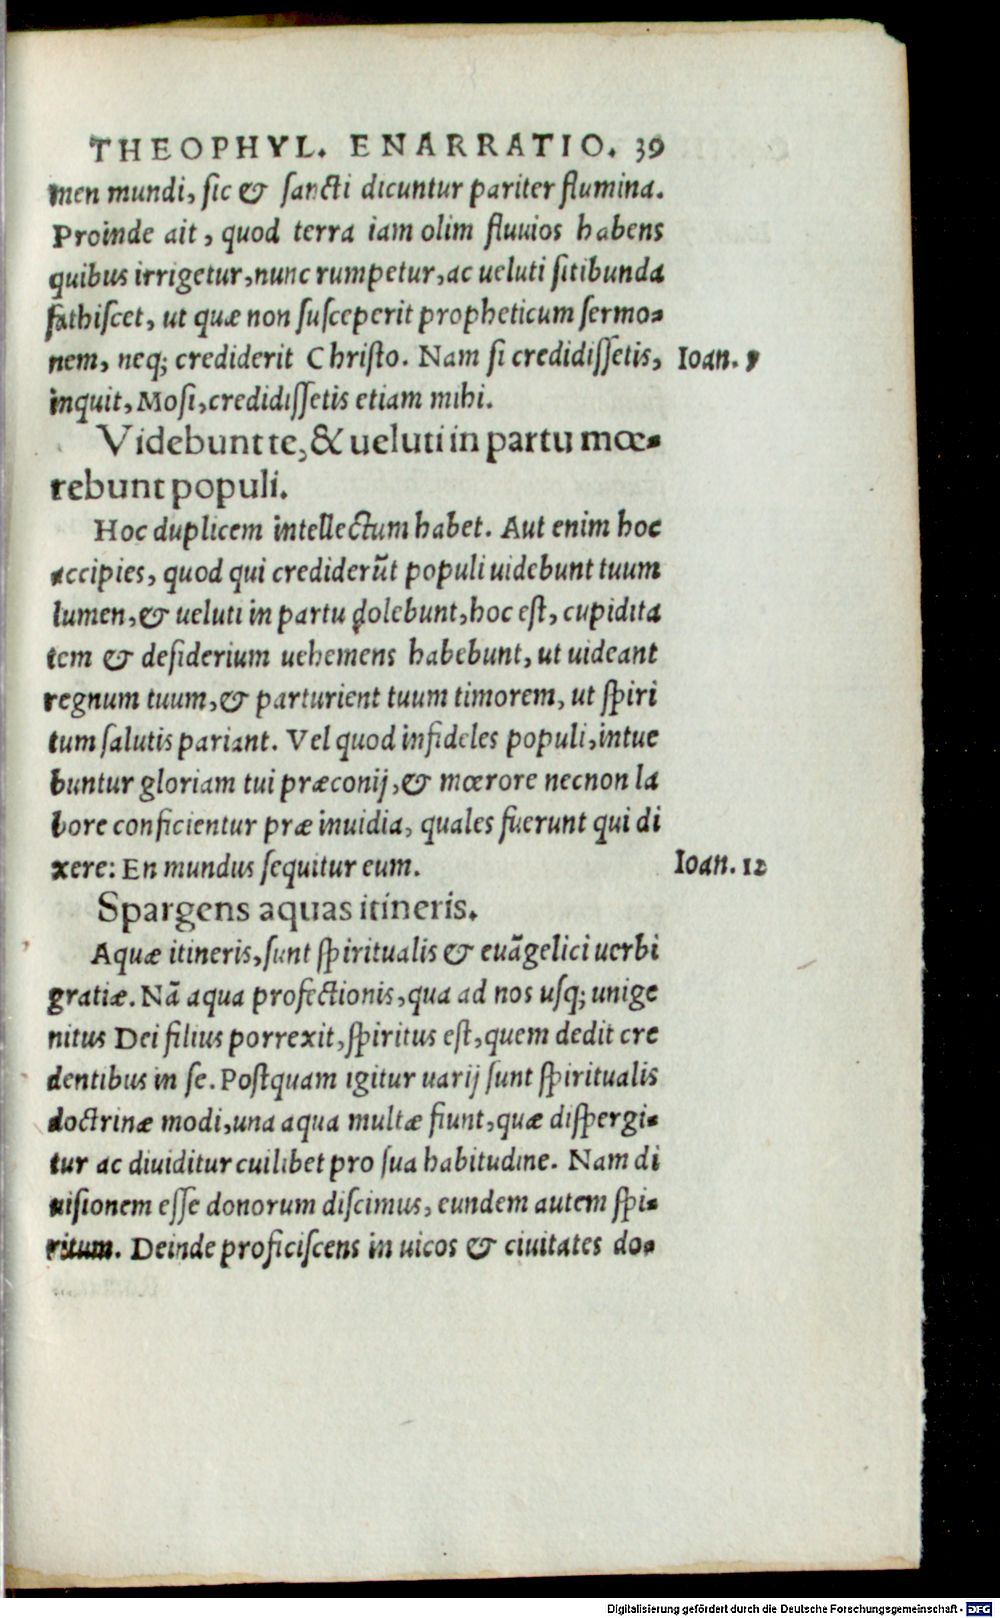 THEOPHYL. ENARRATIO. 39
men mundi, sic & sancti dicuntur pariter flumina.
Proinde ait, quod terra iam olim fluuios habens
quibus irrigetur, nunc rumpetur, ac ueluti sitibunda
fathiscet, ut quæ non susceperit propheticum sermo-
nem, neq; crediderit Christo. Nam si credidissetis, Ioan. 5
inquit, Mosi, credidissetis etiam mihi.
Videbunt te, & ueluti in partu mœ-
rebunt populi.
Hoc duplicem intellectum habet. Aut enim hoc
accipies, quod qui crediderūt populi uidebunt tuum
lumen, & ueluti in partu dolebunt, hoc est, cupidita
tem & desiderium uehemens habebunt, ut uideant
regnum tuum, & parturient tuum timorem, ut spiri
tum salutis pariant. Vel quod infideles populi, intue
buntur gloriam tui præconij, & mœrore necnon la
bore conficientur præ inuidia, quales fuerunt qui di
xere: En mundus sequitur eum. Ioan. 12
Spargens aquas itineris.
Aquæ itineris, sunt spiritualis & euāgelici uerbi
gratiæ. Nā aqua profectionis, qua ad nos usq; unige
nitus Dei filius porrexit, spiritus est, quem dedit cre
dentibus in se. Postquam igitur uarij sunt spiritualis
doctrinæ modi, una aqua multæ fiunt, quæ dispergi-
tur ac diuiditur cuilibet pro sua habitudine. Nam di
uisionem esse donorum discimus, eundem autem spi-
ritum. Deinde proficiscens in uicos & ciuitates do-
Digitalisierung gefördert durch die Deutsche Forschungsgemeinschaft - DFG